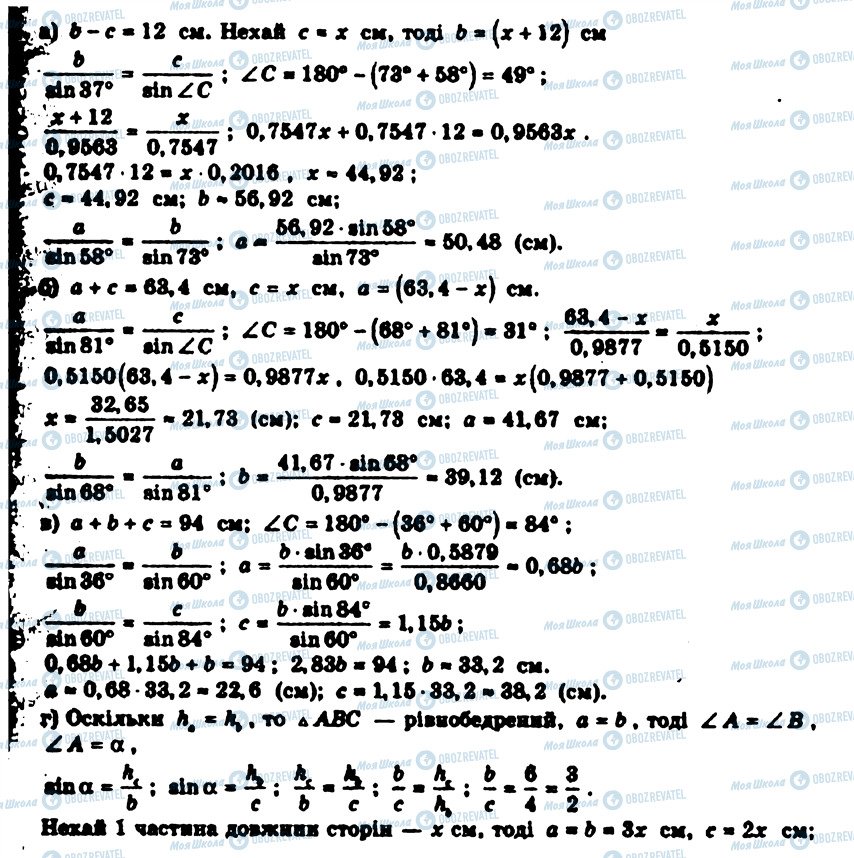 а) b − c = 12 см. Нехай c = x см, тоді b = (x + 12) см
b/sin 37° = c/sin∠C ; ∠C = 180° − (73° + 58°) = 49° ;
(x + 12)/0,9563 = x/0,7547 ; 0,7547x + 0,7547 · 12 = 0,9563x .
0,7547 · 12 = x · 0,2016 , x ≈ 44,92 ;
c = 44,92 см; b ≈ 56,92 см;
a/sin 58° = b/sin 73° ; a = (56,92 · sin 58°)/sin 73° = 50,48 (см).
б) a + c = 63,4 см, c = x см, a = (63,4 − x) см.
a/sin 81° = c/sin∠C ; ∠C = 180° − (68° + 81°) = 31° ; (63,4 − x)/0,9877 = x/0,5150 ;
0,5150(63,4 − x) = 0,9877x , 0,5150 · 63,4 = x(0,9877 + 0,5150)
x = 32,65/1,5027 ≈ 21,73 (см); c = 21,73 см; a = 41,67 см;
b/sin 68° = a/sin 81° ; b = (41,67 · sin 68°)/0,9877 = 39,12 (см).
в) a + b + c = 94 см; ∠C = 180° − (36° + 60°) = 84° ;
a/sin 36° = b/sin 60° ; a = (b · sin 36°)/sin 60° = (b · 0,5879)/0,8660 ≈ 0,68b ;
b/sin 60° = c/sin 84° ; c = (b · sin 84°)/sin 60° = 1,15b ;
0,68b + 1,15b + b = 94 ; 2,83b = 94 ; b ≈ 33,2 см.
a ≈ 0,68 · 33,2 ≈ 22,6 (см); c = 1,15 · 33,2 ≈ 38,2 (см).
г) Оскільки hₐ = h_b , то △ABC — рівнобедрений, a = b , тоді ∠A = ∠B ,
∠A = α ,
sin α = h_c/b ; sin α = h_b/c ; h_c/b = h_b/c ; b/c = h_c/h_b ; b/c = 6/4 = 3/2 .
Нехай 1 частина довжини сторін — x см, тоді a = b = 3x см, c = 2x см;